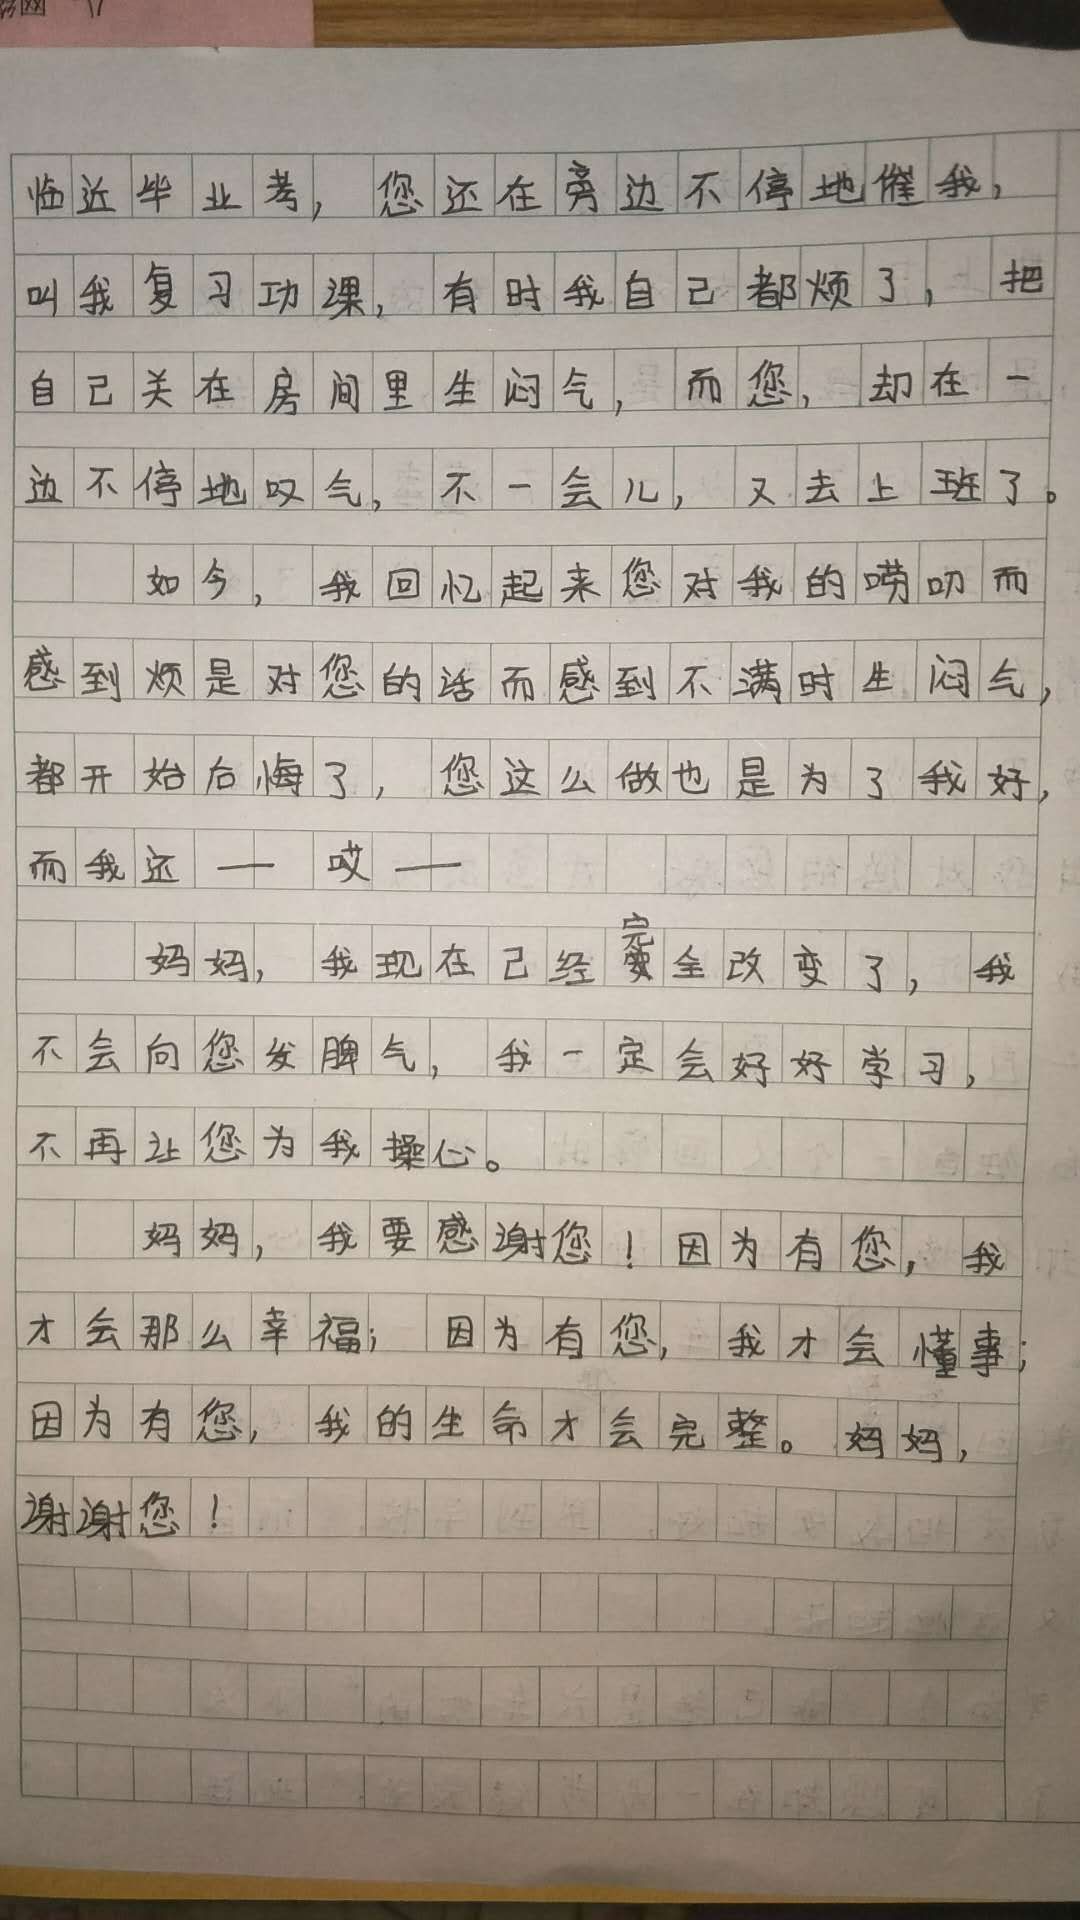 临近毕业考，您还在旁边不停地催我，
叫我复习功课，有时我自己都烦了，把
自己关在房间里生闷气，而您，却在一
边不停地叹气，不一会儿，又去上班了。
如今，我回忆起来您对我的唠叨而
感到烦是对您的话而感到不满时生闷气，
都开始后悔了，您这么做也是为了我好，
而我还——哎——
妈妈，我现在已经完全改变了，我
不会向您发脾气，我一定会好好学习，
不再让您为我操心。
妈妈，我要感谢您！因为有您，我
才会那么幸福；因为有您，我才会懂事；
因为有您，我的生命才会完整。妈妈，
谢谢您！